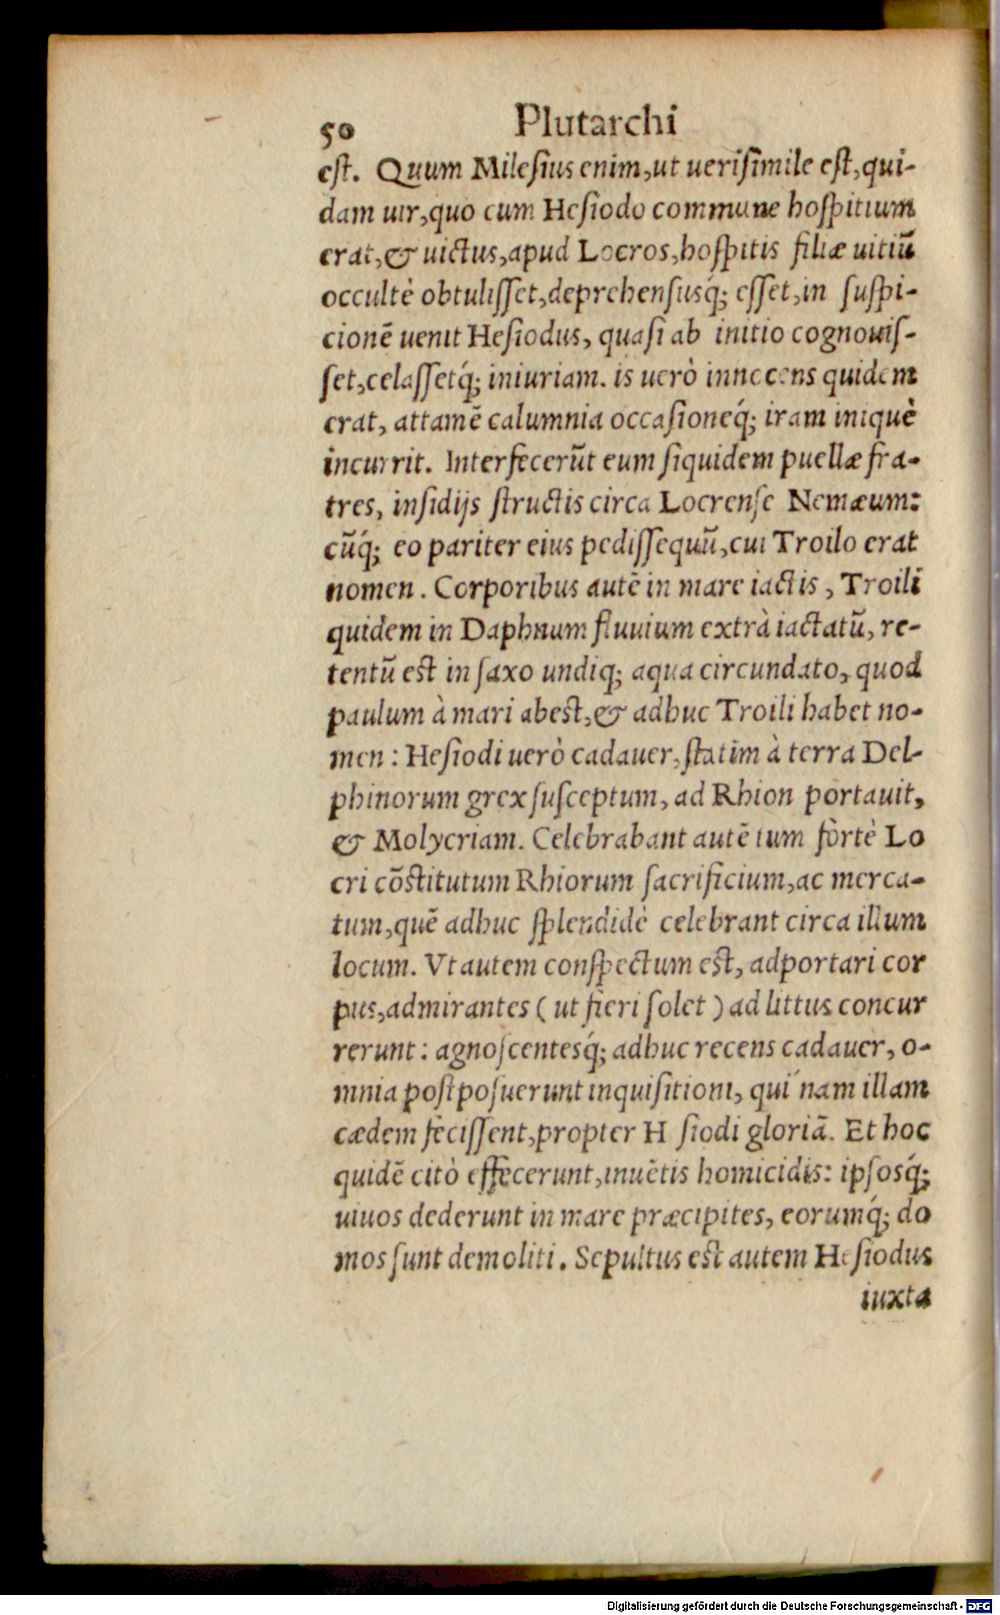 50 Plutarchi
eſt. Quum Mileſius enim,ut ueriſimile eſt,qui-
dam uir,quo cum Heſiodo commune hoſpitium
erat,& uictus,apud Locros,hoſpitis filiæ uitiũ
occultè obtuliſſet,deprehenſusq́; eſſet,in ſuſpi-
cionẽ uenit Heſiodus, quaſi ab initio cognouiſ-
ſet,celaſſetq́; iniuriam. is uerò innocens quidem
erat, attamẽ calumnia occaſioneq́; iram iniquè
incurrit. Interfecerũt eum ſiquidem puellæ fra-
tres, inſidijs ſtructis circa Locrenſe Nemæum:
cũq́; eo pariter eius pediſſequũ,cui Troilo erat
nomen. Corporibus autẽ in mare iactis, Troili
quidem in Daphnum fluuium extrà iactatũ, re-
tentũ eſt in ſaxo undiq; aqua circundato, quod
paulum à mari abest,& adhuc Troili habet no-
men : Heſiodi uerò cadauer,ſtatim à terra Del-
phinorum grex ſuſceptum, ad Rhion portauit,
& Molycriam. Celebrabant autẽ tum fòrtè Lo
cri cõstitutum Rhiorum ſacrificium,ac merca-
tum,quẽ adhuc ſplendidè celebrant circa illum
locum. Vt autem conſpectum est, adportari cor
pus,admirantes ( ut fieri ſolet ) ad littus concur
rerunt : agnoſcentesq́; adhuc recens cadauer, o-
mnia poſtpoſuerunt inquiſitioni, quí nam illam
cædem feciſſent,propter H ſiodi gloriã. Et hoc
quidẽ citò effecerunt,inuẽtis homicidis: ipſosq́;
uiuos dederunt in mare præcipites, eorumq́; do
mos ſunt demoliti. Sepultus est autem Heſiodus
iuxta
Digitalisierung gefördert durch die Deutsche Forschungsgemeinschaft - DFG